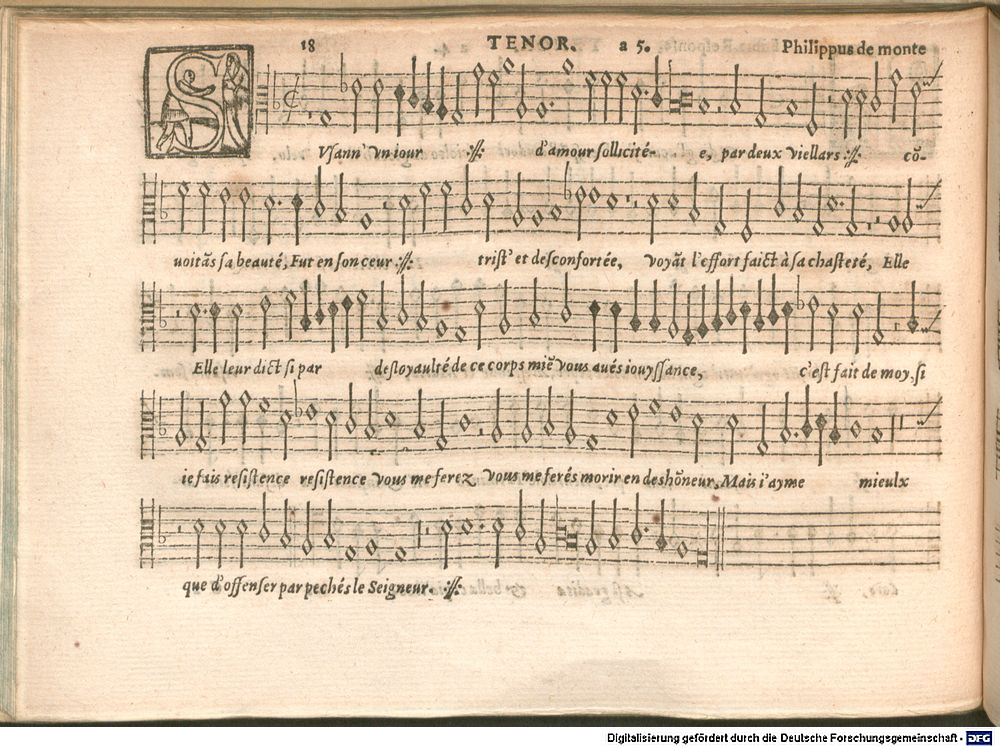 18 TENOR. a 5. Philippus de monte
SVsann' vn iour ·//· d'amour sollicité- e, par deux viellars ·//· cõ-
uoitãs sa beauté, Fut en son cœur ·//· trist' et desconfortée, voyãt l'effort faict à sa chasteté, Elle
Elle leur dict si par desloyaulté de ce corps miẽ vous aués iouyssance, c'est fait de moy, si
ie fais resistence resistence vous me ferez vous me ferés morir en deshõneur, Mais i'ayme mieulx
que d'offenser par pechés le Seigneur. ·//·
Digitalisierung gefördert durch die Deutsche Forschungsgemeinschaft - DFG